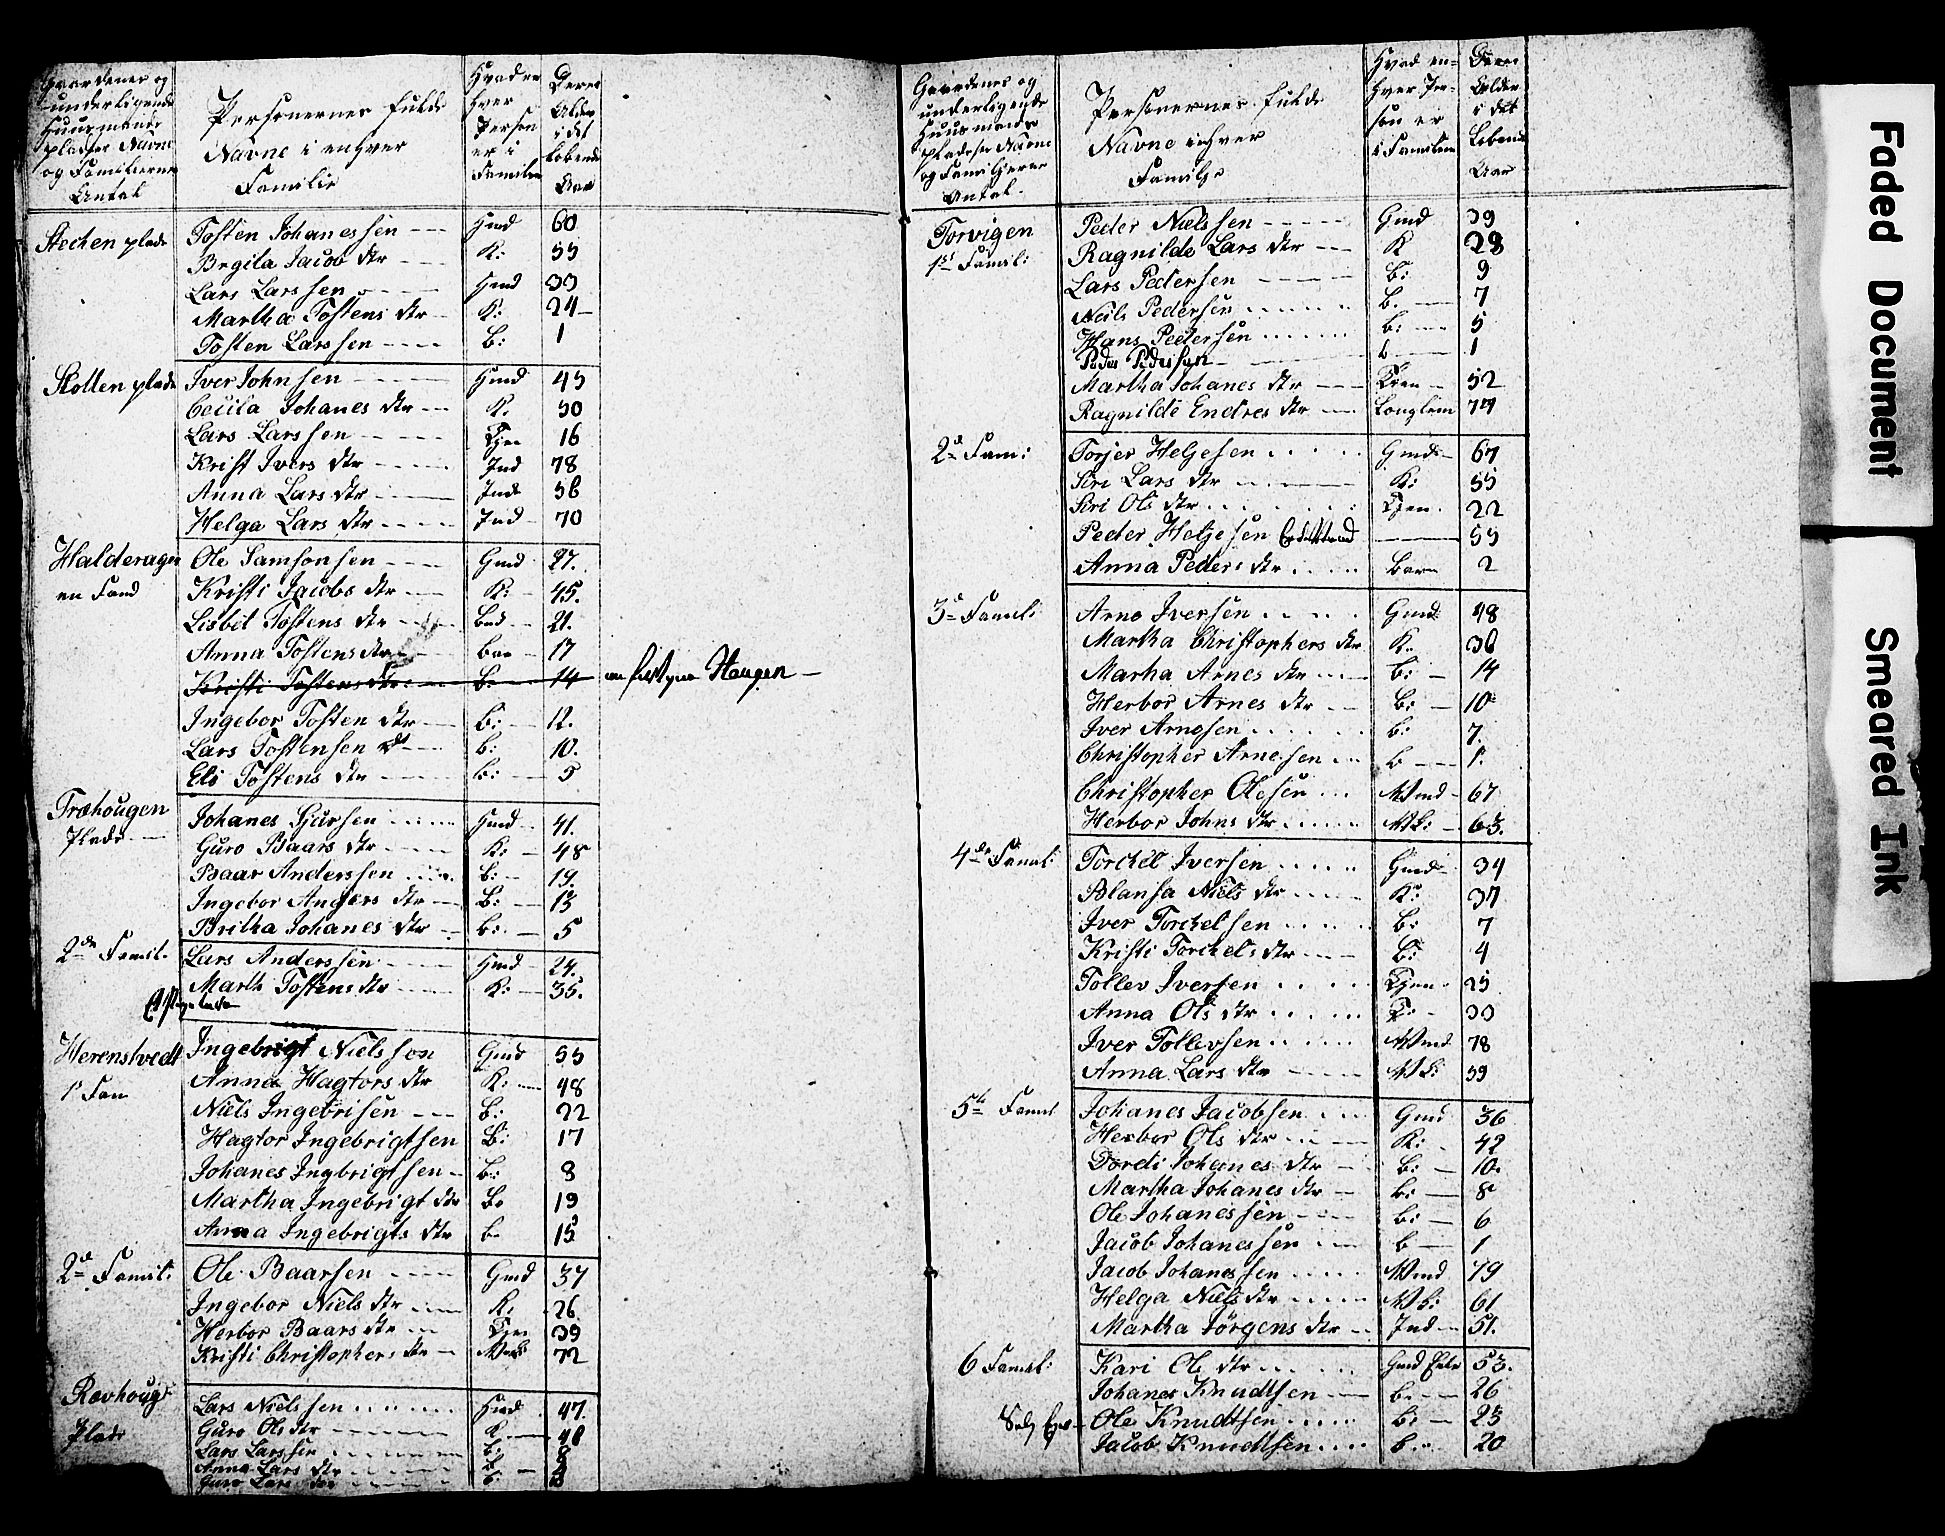 Gaardenes og
underligende
Huusmands
pladser Navne
og Familiernes
Antal
Personernes fulde
Navne i enhver
Familie
Hvad en
hver
Person
er i
Familien
Deres
Alder
i det
løbende
Aar
Stechen plads Tosten Johanessen Hmd 60
Brgita Jacob dtr K: 55
Lars Larssen Hmd 33
Martha Tostens dtr K: 24
Tosten Larssen B: 1
Skollen plads Iver Johnsen Hmd 45
Cecila Johanes dtr K. 50
Lars Larssen Tjen 16
Krist Ivers dtr Ind 78
Anna Lars dtr Ind 56
Helga Lars dtr Ind 70
Halderagen Ole Samsonsen Gmd 27.
en Famil Kristi Jacobs dtr K: 45.
Lisbit Tostens dtr 21.
Anna Tostens dtr 17
Kristi Tostens dtr B. 14 Haugen
Ingebor Tosten dtr B: 12.
Lars Tostensen b: 10.
Eli Tostens dtr b: 5
Træhougen Johanes Sjursen Hmd 41.
Plads Guro Baars dtr K: 48
Baar Anderssen b: 19.
Ingebor Anders dtr B: 13
Britha Johanes dtr b: 5
2de Famil. Lars Anderssen Hmd 24.
Marth Tostens dtr K: 35.
Herenstvedt Ingebrigt Nielsson Gmd 55
1s Fam Anna Hagtors dtr K: 48
Niels Ingebrisen B: 22
Hagtor Ingebrigtsen B: 17
Johanes Ingbrigtsen B: 8
Martha Ingebrigt dtr B. 19
Anna Ingebrigts dtr b. 15
2d Famil: Ole Baarsen Gmd 37
Ingebor Niels dtr K: 26
Herbor Baars dtr Tjen 39
Kristi Christophers dtr 72
Rævhougs Lars Nielssen Hmd 47.
Plads Guro Ols dtr K. 48
Lars Larssen B: 8
Anna Lars dtr b
Guro Lars dtr b
Gaardenes og
underligende
Huusmands
pladser Navne
og Familjernes
Antal.
Personernes fulde
Navne i enhver
Familje
Hvad en-
hver Per-
son er
i Familien
Deres
Alder
i det
løbende
Aar
Torvigen Peder Nielssen Gmd 39
1st Famil: Ragnilde Lars dtr K 28
Lars Pedersen b: 9
Niels Pedersen b. 7
Hans Pedersen b: 5
Peder Pedersen b 1
Martha Johanes dtr Tjen 52
Ragnilde Endres dtr Longlem 77
2d Fami: Torjer Heljesen Gmd 67
Siri Lars dtr K: 55
Siri Ols dtr Tjen. 22
Peder Heljesen 55
Anna Peders dtr Barn 2
3d Famil: Arne Iversen Gmd 48
Martha Christophers dtr K. 36
Martha Arnes dtr b: 14
Herbor Arnes dtr B: 10
Iver Arnesen b: 7.
Christopher Arnesen b 1.
Christopher Olesen 67
Herbor Johns dtr 63.
4de Famil: Torckel Iversen Gmd 34
Blansa Niels dtr K: 37
Iver Torckelsen B: 7
Kristi Torckels dtr B: 4
Tollev Iversen Tjen. 25
Anna Ols dtr T: 30
Iver Tollevsen 78
Anna Lars dtr 59
5te Famil Johanes Jacobsen Gmd 36
Herbor Ols dtr K: 42
Dordi Johanes dtr B: 10.
Martha Johanes dtr b: 8
Ole Johanessen b: 6
Jacob Johanessen b 1
Jacob Johanessen 79
Helga Niels dtr 61
Martha Jörgens dtr Ind 51.
6 Famil: Kari Ole dtr Gmd Enke 53.
Johanes Knudtsen b. 26
Ole Knudtsen B: 23
Jacob Knudtsen b. 20
Faded Document
Smeared Ink